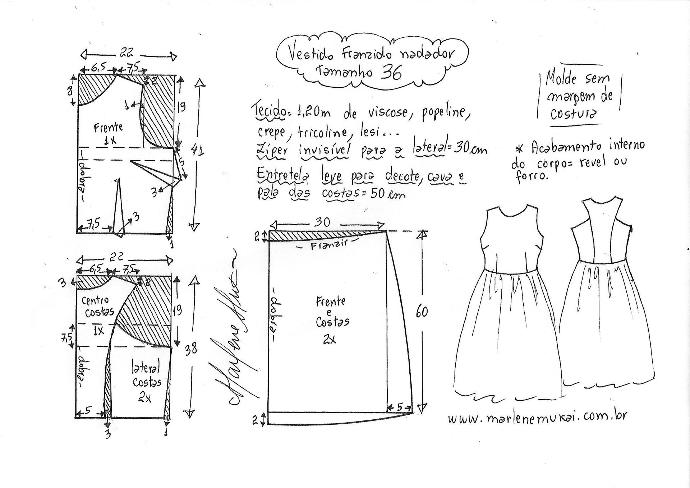 Vestido Franzido nadador
Tamanho 36
Molde sem
margem de
costura
Tecido= 1,20m de viscose, popeline,
crepe, tricoline, lesi...
Zíper invisível para a lateral=30cm
Entretela leve para decote, cava e
pala das costas=50cm
* Acabamento interno
do corpo= revel ou
forro.
22
6,5 7,5
8
2
1
19
Frente
1x
41
3
3
-dobra-
7,5
3
1
22
6,5 7,5
3
Centro
costas
1x
19
7,5
38
-dobra-
lateral
costas
2x
5
3
1
30
2
- Franzir -
-dobra-
Frente
e
Costas
2x
60
5
2
Marlene Mukai
www.marlenemukai.com.br